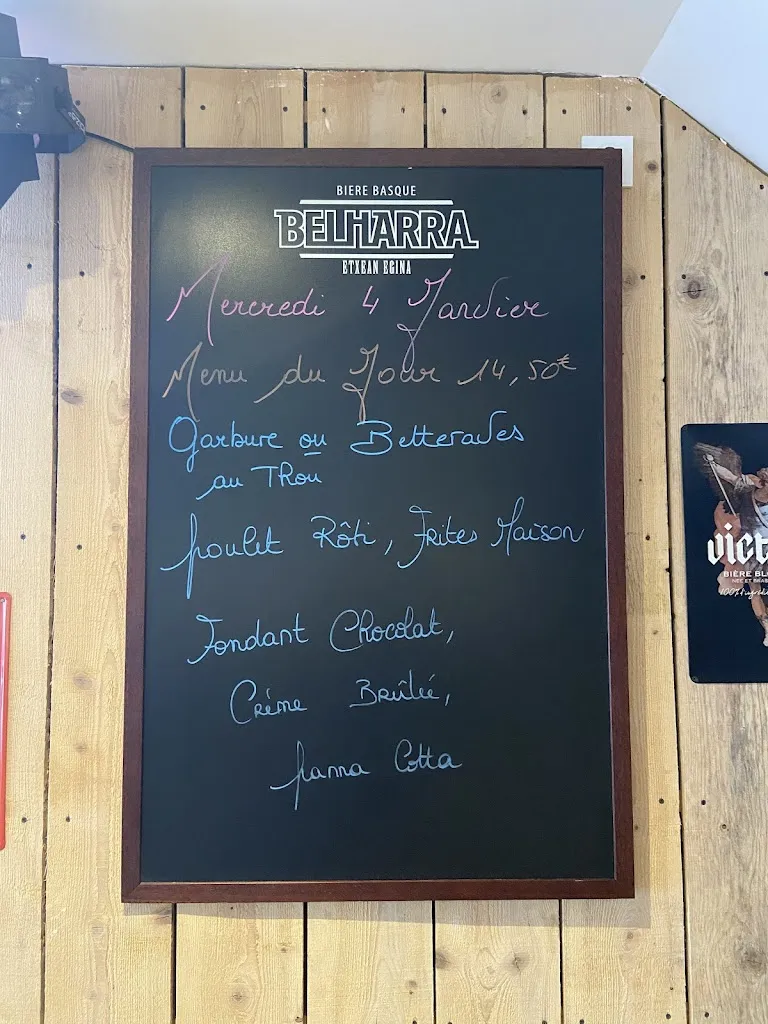 BIERE BASQUE
BELHARRA
ETXEAN EGINA
Mercredi 4 Janvier
Menu du Jour 14,50€
Garbure ou Betteraves
au Thon
poulet Rôti, Frites Maison
Fondant Chocolat,
Crème Brûlée,
panna Cotta
VICT
BIÈRE BL